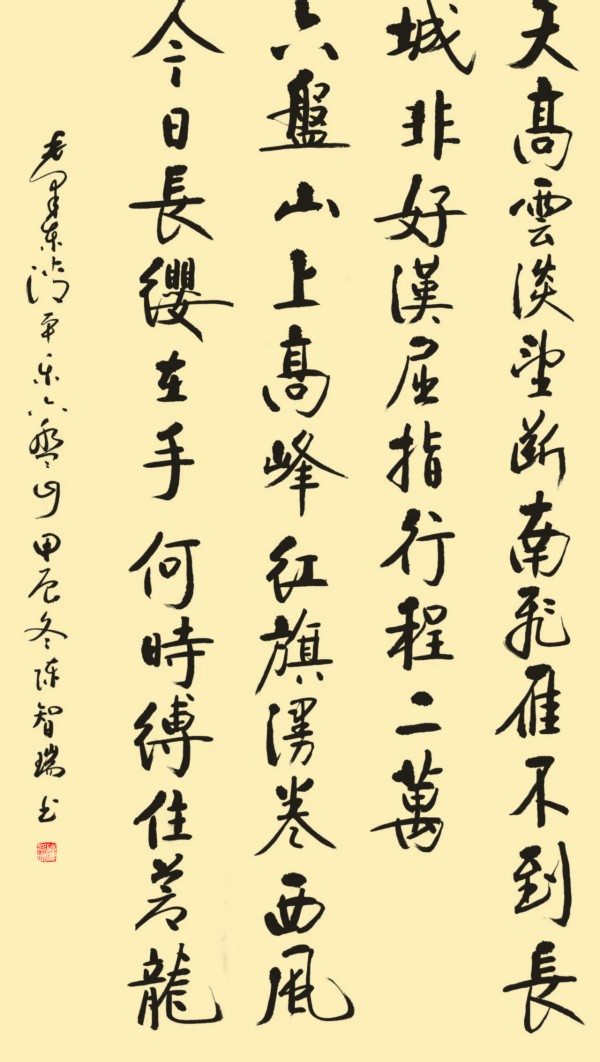 天高雲淡望斷南飛雁不到長
城非好漢屈指行程二萬
六盤山上高峰紅旗漫卷西風
今日長纓在手何時縛住蒼龍
毛澤東清平樂六盤山甲辰冬陳智瑞書